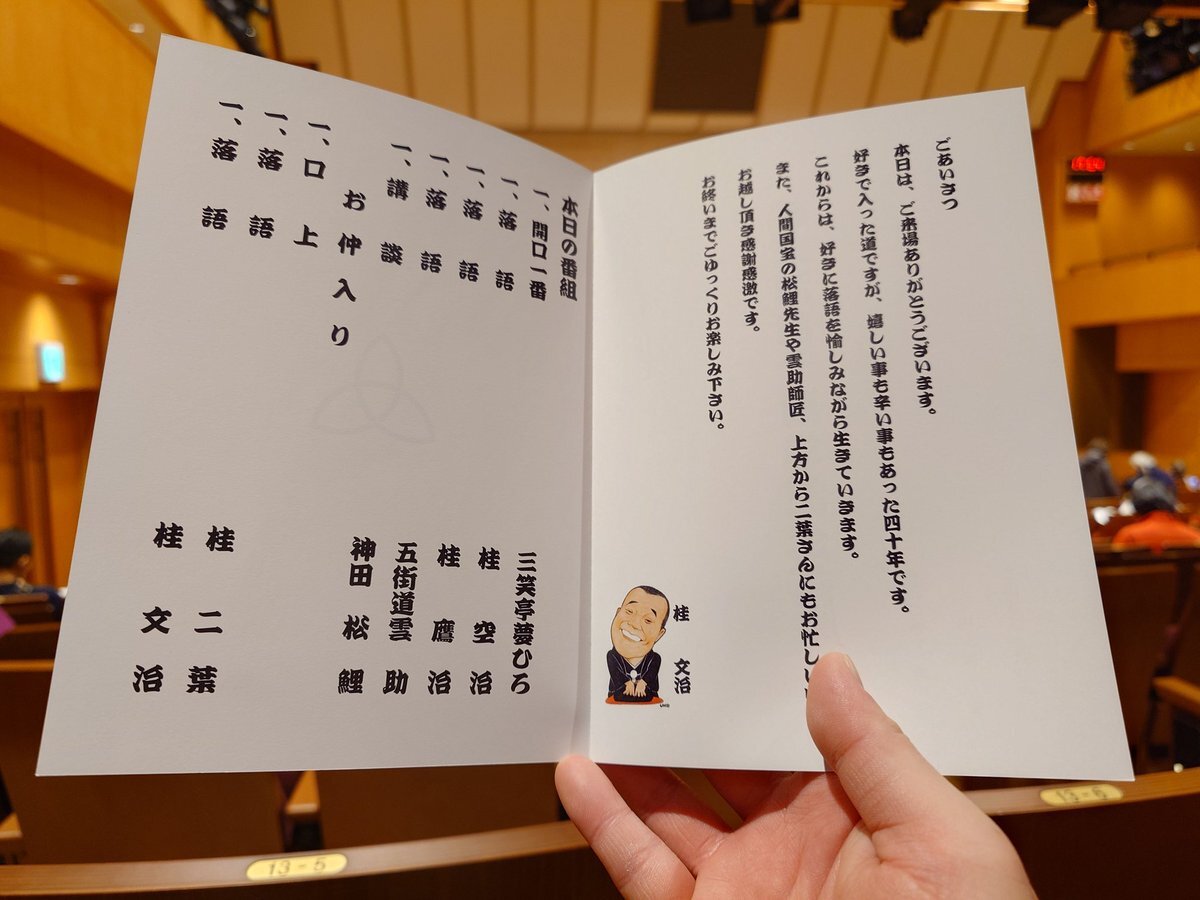 ごあいさつ
本日は、ご来場ありがとうございます。
好きで入った道ですが、嬉しい事も辛い事もあった四十年です。
これからは、好きに落語を愉しみながら生きていきます。
また、人間国宝の松鯉先生や雲助師匠、上方から二葉さんにもお忙し
お越し頂き感謝感激です。
お終いまでごゆっくりお楽しみ下さい。
桂 文治
本日の番組
一、開口一番 三笑亭夢ひろ
一、落語 桂 空治
一、落語 桂 鷹治
一、落語 五街道雲助
一、講談 神田 松鯉
お仲入り
一、口上
一、落語 桂 二葉
一、落語 桂 文治
13-5
13-6